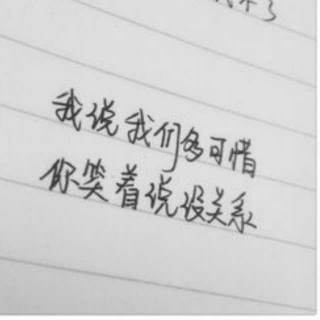 我说我们多可惜
你笑着说没关系